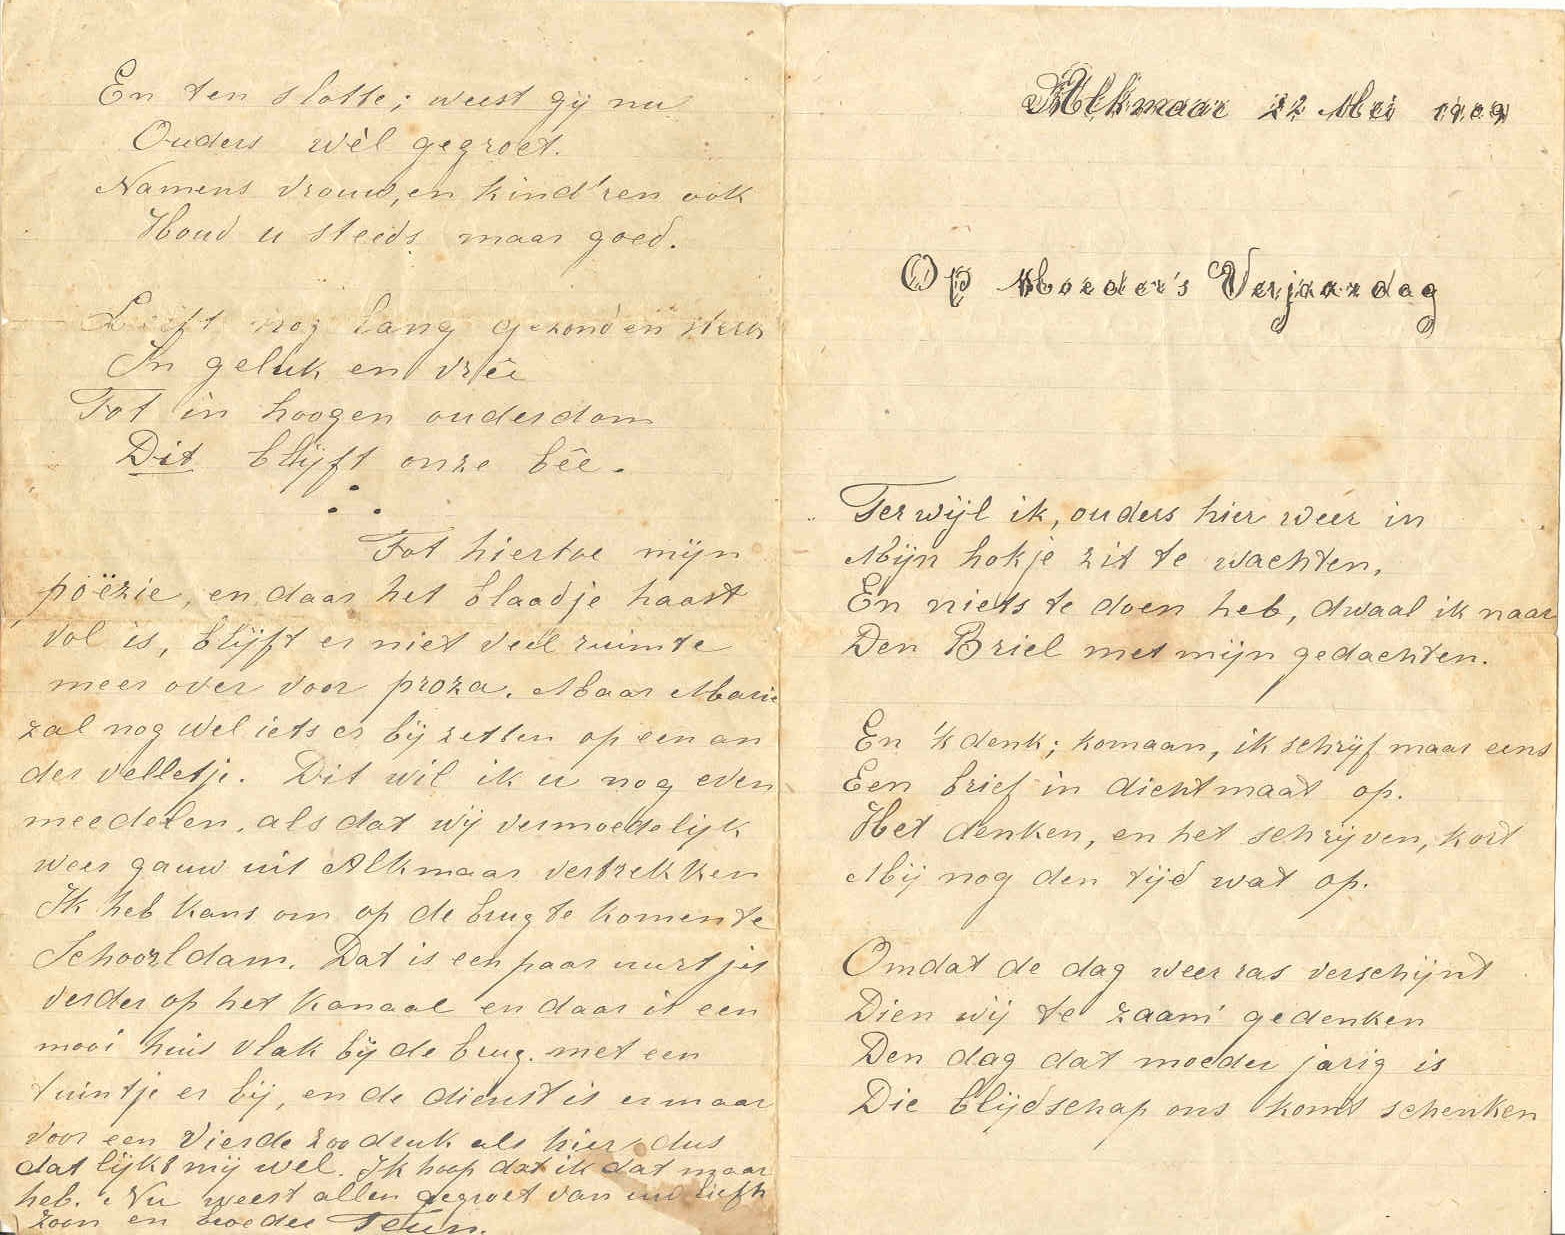 Alkmaar 22 Mei 1909
Op Moeder's Verjaardag
Terwijl ik, ouders hier weer in
Mijn hokje zit te wachten,
En niets te doen heb, dwaal ik naar
Den Briel met mijn gedachten.
En 'k denk; komaan, ik schrijf maar eens
Een brief in dichtmaat op.
Het denken, en het schrijven, kort
Mij nog den tijd wat op.
Omdat de dag weer ras verschijnt
Dien wij te zaam' gedenken
Den dag dat moeder jarig is
Die blijdschap ons komt schenken
En ten slotte; weest gij nu
Ouders wèl gegroet.
Namens vrouw, en kind'ren ook
Houd u steeds maar goed.
Leeft nog lang gezond en sterk
In geluk en vrêe
Tot in hoogen ouderdom
Dit blijft onze bêe.
Tot hiertoe mijn
poëzie, en daar het blaadje haast
vol is, blijft er niet veel ruimte
meer over voor proza. Maar Marie
zal nog wel iets er bij zetten op een an
der velletje. Dit wil ik u nog even
meedelen, als dat wij vermoedelijk
weer gauw uit Alkmaar vertrekken
Ik heb kans om op de brug te komen te
Schoorldam. Dat is een paar uurtjes
verder op het kanaal en daar is een
mooi huis vlak bij de brug. met een
tuintje er bij, en de dienst is er maar
voor een vierde zoo druk als hier dus
dat lijkt mij wel. Ik hoop dat ik dat maar
heb. Nu weest allen gegroet van uw liefh
zoon en broeder Teun.